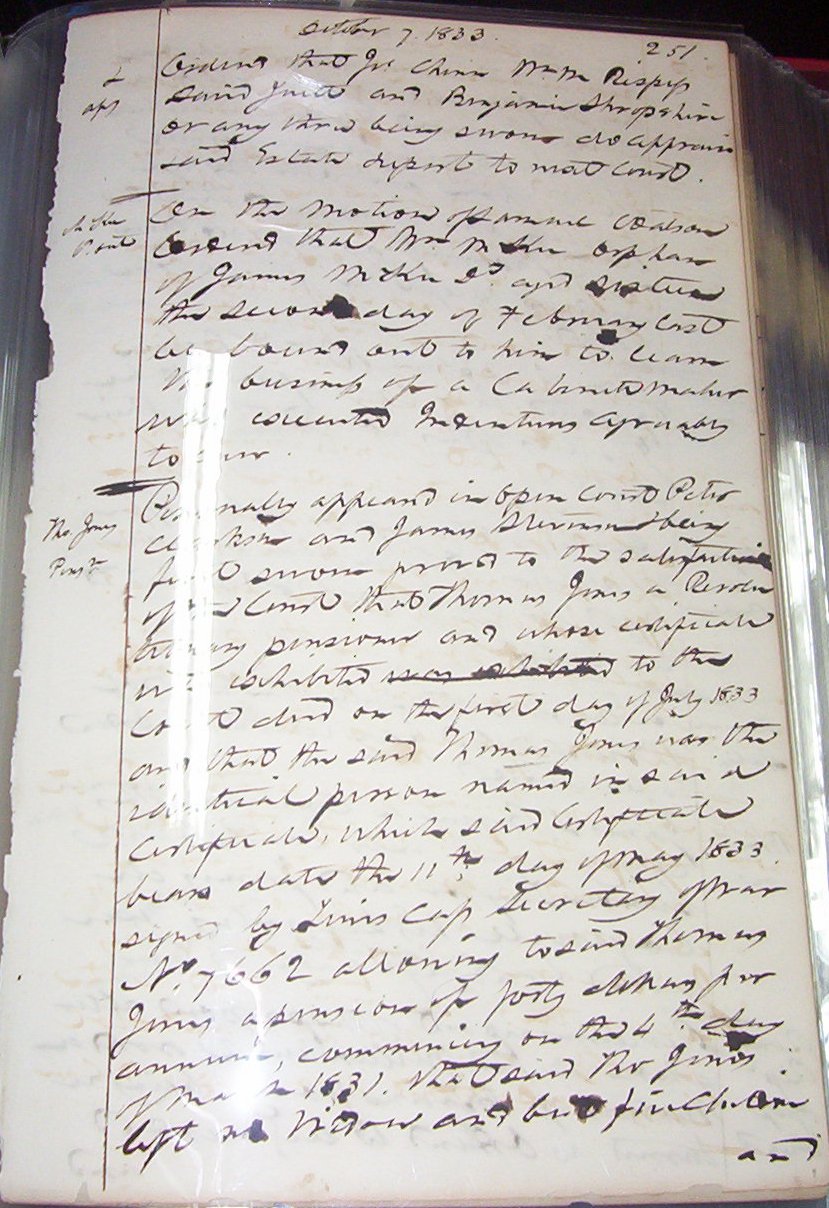 October 7. 1833.
251.
& aps
Ordered that Jos. Chinn Wm M Rispess
David Juett and Benjamin Shropshire
or any three being sworn do appraise
said Estate & report to next Court.
McKee Bound
On the motion of Samuel Watson
Ordered that Wm McKee orphan
of James McKee Decd. aged sixteen
the second day of February last
be bound out to him to learn
the business of a Cabinet maker
who executed Indentures agreeably
to Law.
Tho. Jones Pensr.
Personally appeared in open Court Peter
Clarkson and James Stevenson & being
first sworn proved to the satisfaction
of the Court that Thomas Jones a Revolu
tionary pensioner and whose certificate
was exhibited was exhibited to the
Court died on the first day of July 1833
and that the said Thomas Jones was the
identical person named in said
Certificate, which said Certificate
bears date the 11th. day of May 1833.
signed by Lewis Cass Secretary of War
No. 7662 allowing to said Thomas
Jones a pension of forty dollars per
annum, commencing on the 4th. day
of March 1831. that said Tho Jones
left no Widow and but five Children
and